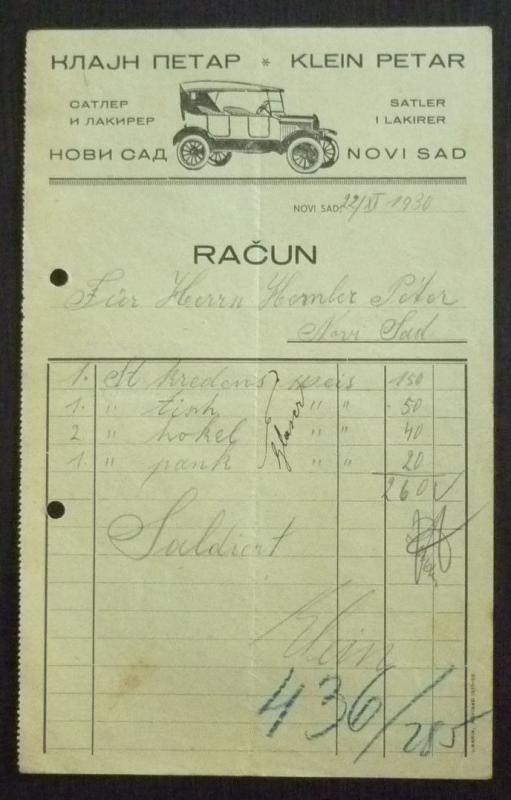 КЛАЈН ПЕТАР * KLEIN PETAR
САТЛЕР И ЛАКИРЕР
SATLER I LAKIRER
НОВИ САД NOVI SAD
NOVI SAD, 22/XI 1930
RAČUN
Für Herrn Hemler Péter
Novi Sad
1. St kredens weis 150
1. " tish " " 50
2 " hokel " " 40
1. " pank " " 20
260
Saldiert
Klein
436/285